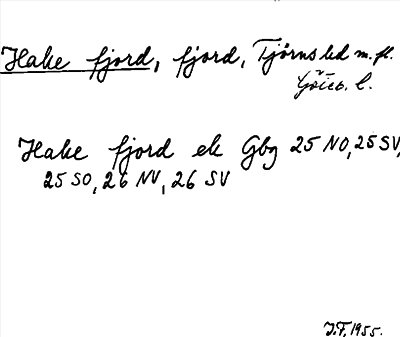 Hake fjord, fjord, Tjörns hd m.fl.
Göteb. l.
Hake fjord ek Gbg 25 NO, 25 SV,
25 SO, 26 NV, 26 SV
J.F. 1955.